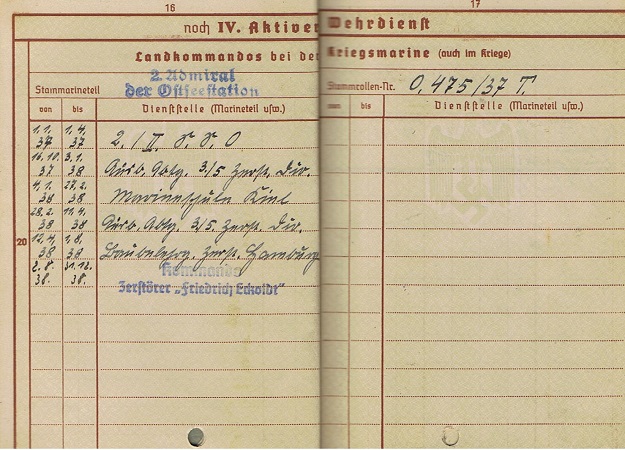 16
17
noch IV. Aktiver Wehrdienst
Landkommandos bei der Kriegsmarine (auch im Kriege)
2. Admiral
der Ostseestation
Stammarineteil
Stammrollen-Nr. O. 475/37 T.
von bis Dienststelle (Marineteil usw.)
von bis Dienststelle (Marineteil usw.)
1.1. 1.4.
37 37 2./II. S. S. O
16.10. 3.1.
37 38 Ausb. Abtg. 3./5. Zerst. Div.
4.1. 27.2.
38 38 Marineschule Kiel
28.2. 11.4.
38 38 Ausb. Abtg. 3./5. Zerst. Div.
12.4. 1.8.
20
38 38 Baubelehrg. Zerst. Hamburg
2.8. 31.12. Kommando
38. 38. Zerstörer „Friedrich Eckoldt"